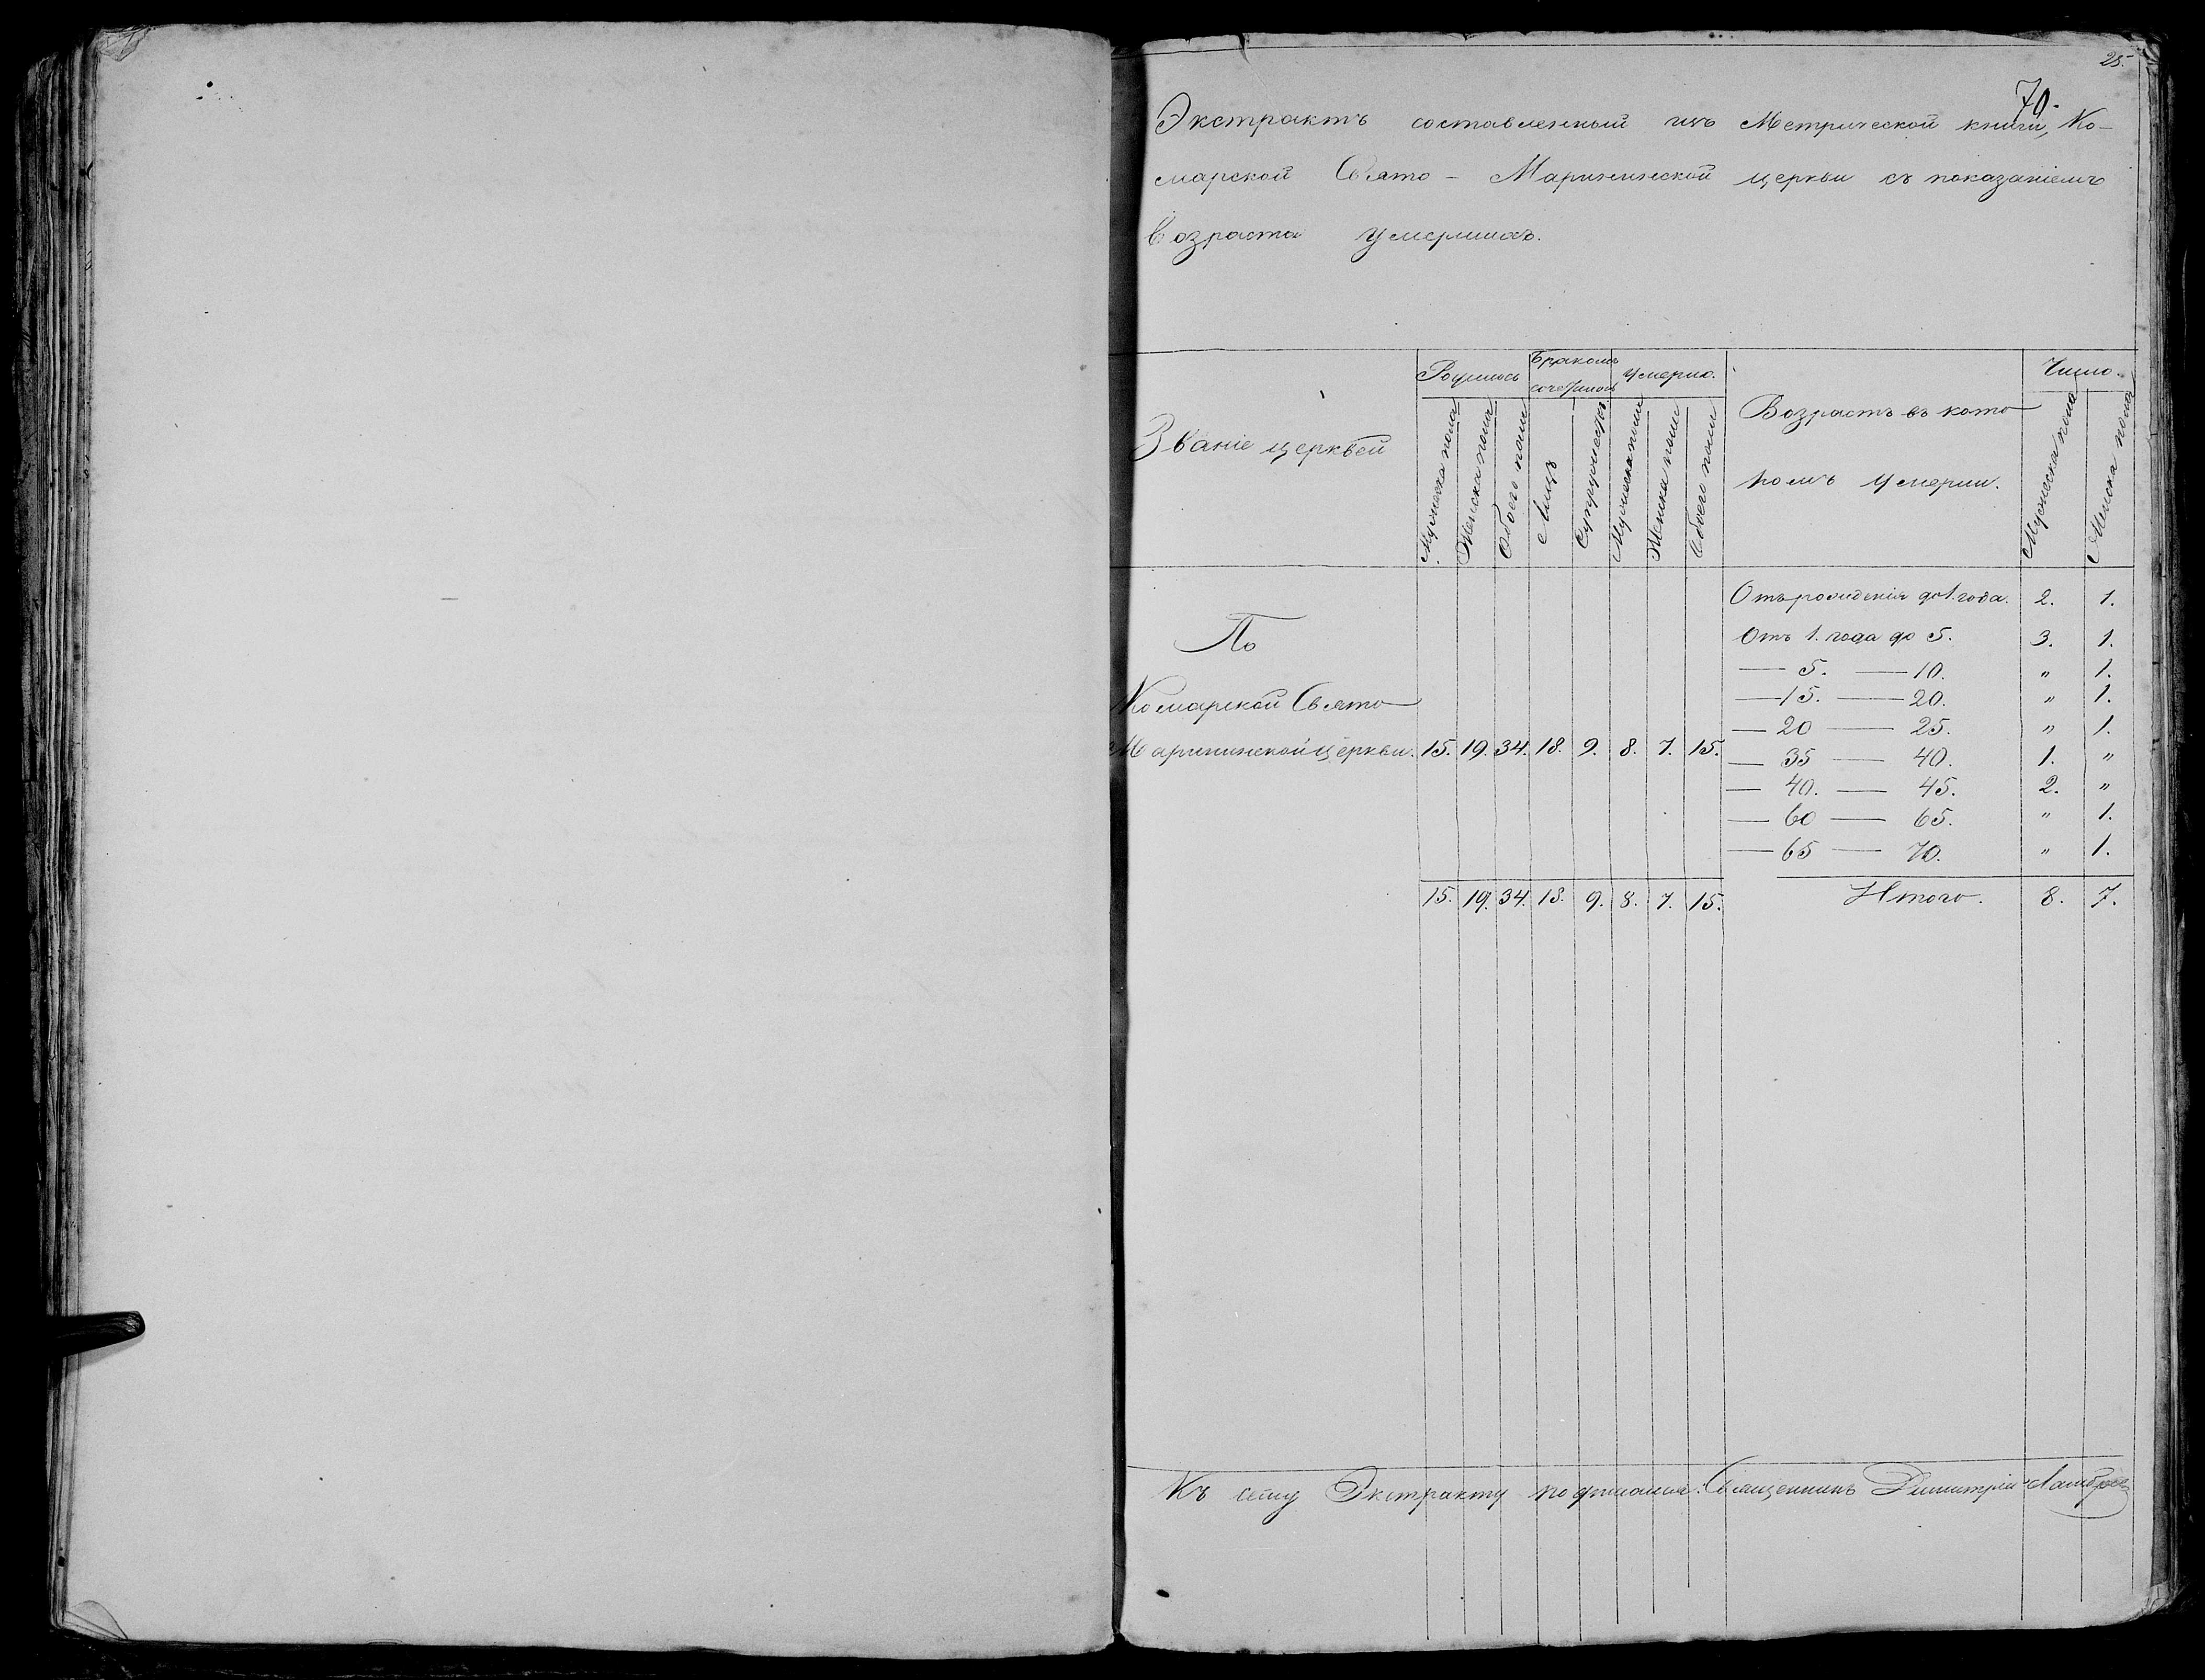 25.
70.
Экстрактъ составленный изъ Метрической книги, Ко-
марской Свято - Маринской церкви съ показаніемъ
возраста умершихъ.
Званіе церквей
Родилось
Бракомъ
сочеталось
Умерло.
Возрастъ въ кото
ромъ умерли.
Число.
Мужеска пола
Женска пола
Обоего пола
Лицъ
Супружествъ
Мужеска пола
Женска пола
Обоего пола
Мужеска пола
Женска пола
Отъ рожденія до 1. года. 2. 1.
По
Отъ 1. года до 5. 3. 1.
— 5. — 10. " 1.
— 15. — 20. " 1.
Комарской Свято
— 20 — 25. " 1.
Маринской церкви. 15. 19. 34. 18. 9. 8. 7. 15.
— 35 — 40. 1. "
— 40. — 45. 2. "
— 60 — 65. " 1.
— 65 — 70. " 1.
15. 19. 34. 18. 9. 8. 7. 15.
Итого. 8. 7.
Къ сему Экстракту подписался: Священникъ Димитрій